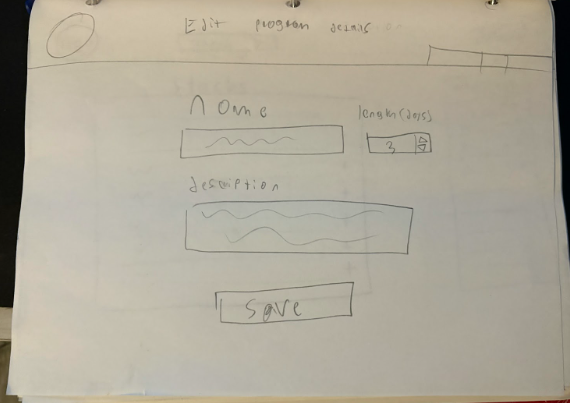 Edit program details
name
length (days)
3
description
save